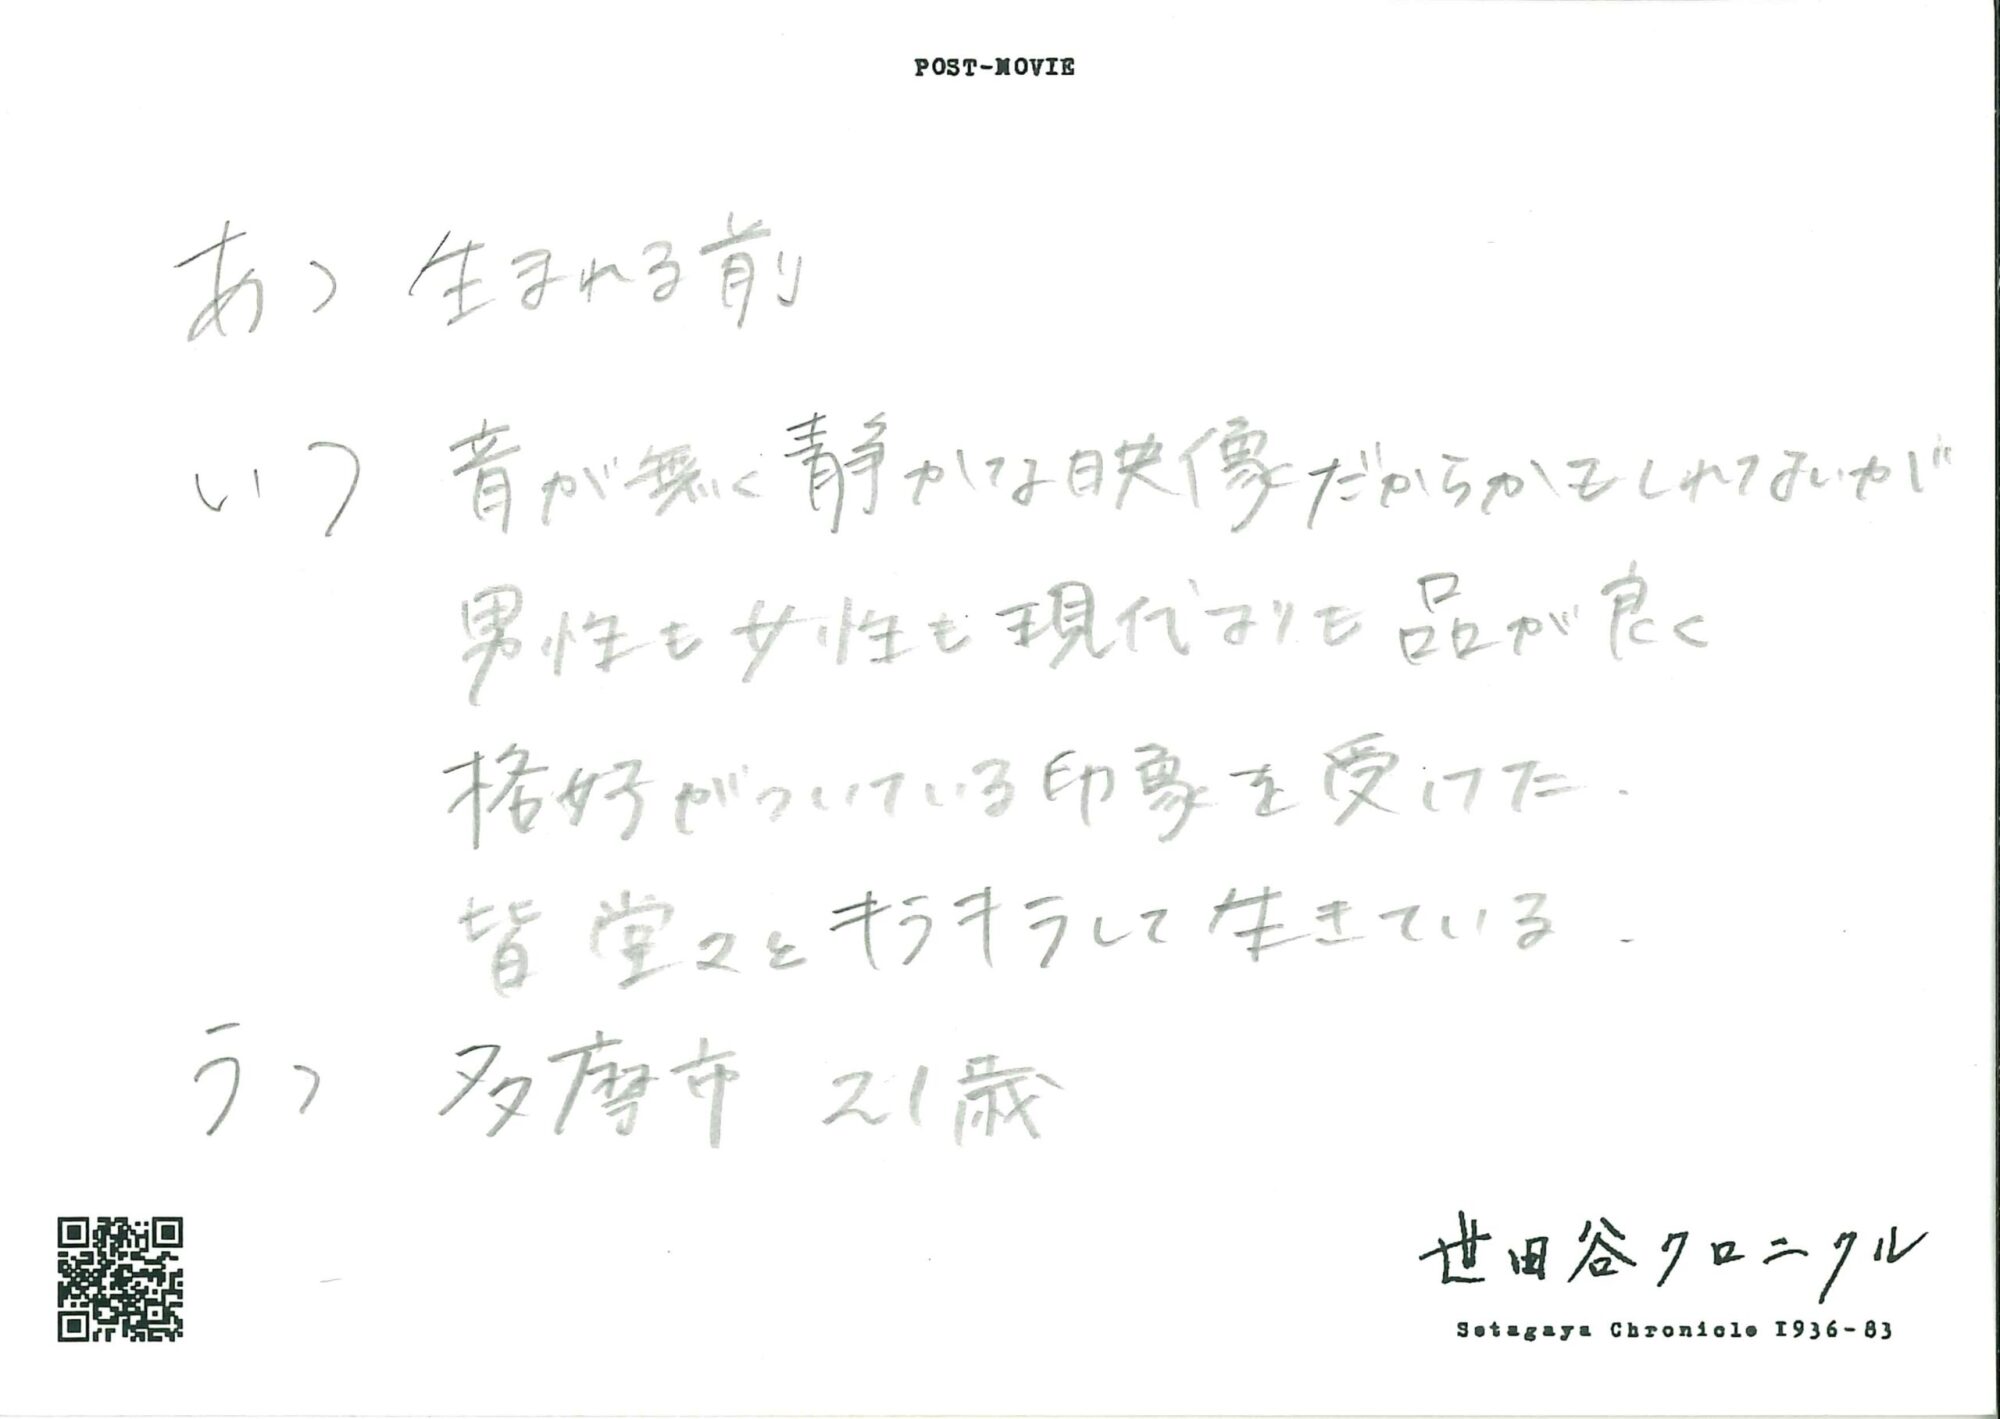 POST-MOVIE
あ） 生まれる前
い） 音が無く静かな映像だからかもしれないが
男性も女性も現代よりも品が良く
格好がついている印象を受けた.
皆堂々とキラキラして生きている.
う） 多摩市 21歳
世田谷クロニクル
Setagaya Chronicle 1936-83